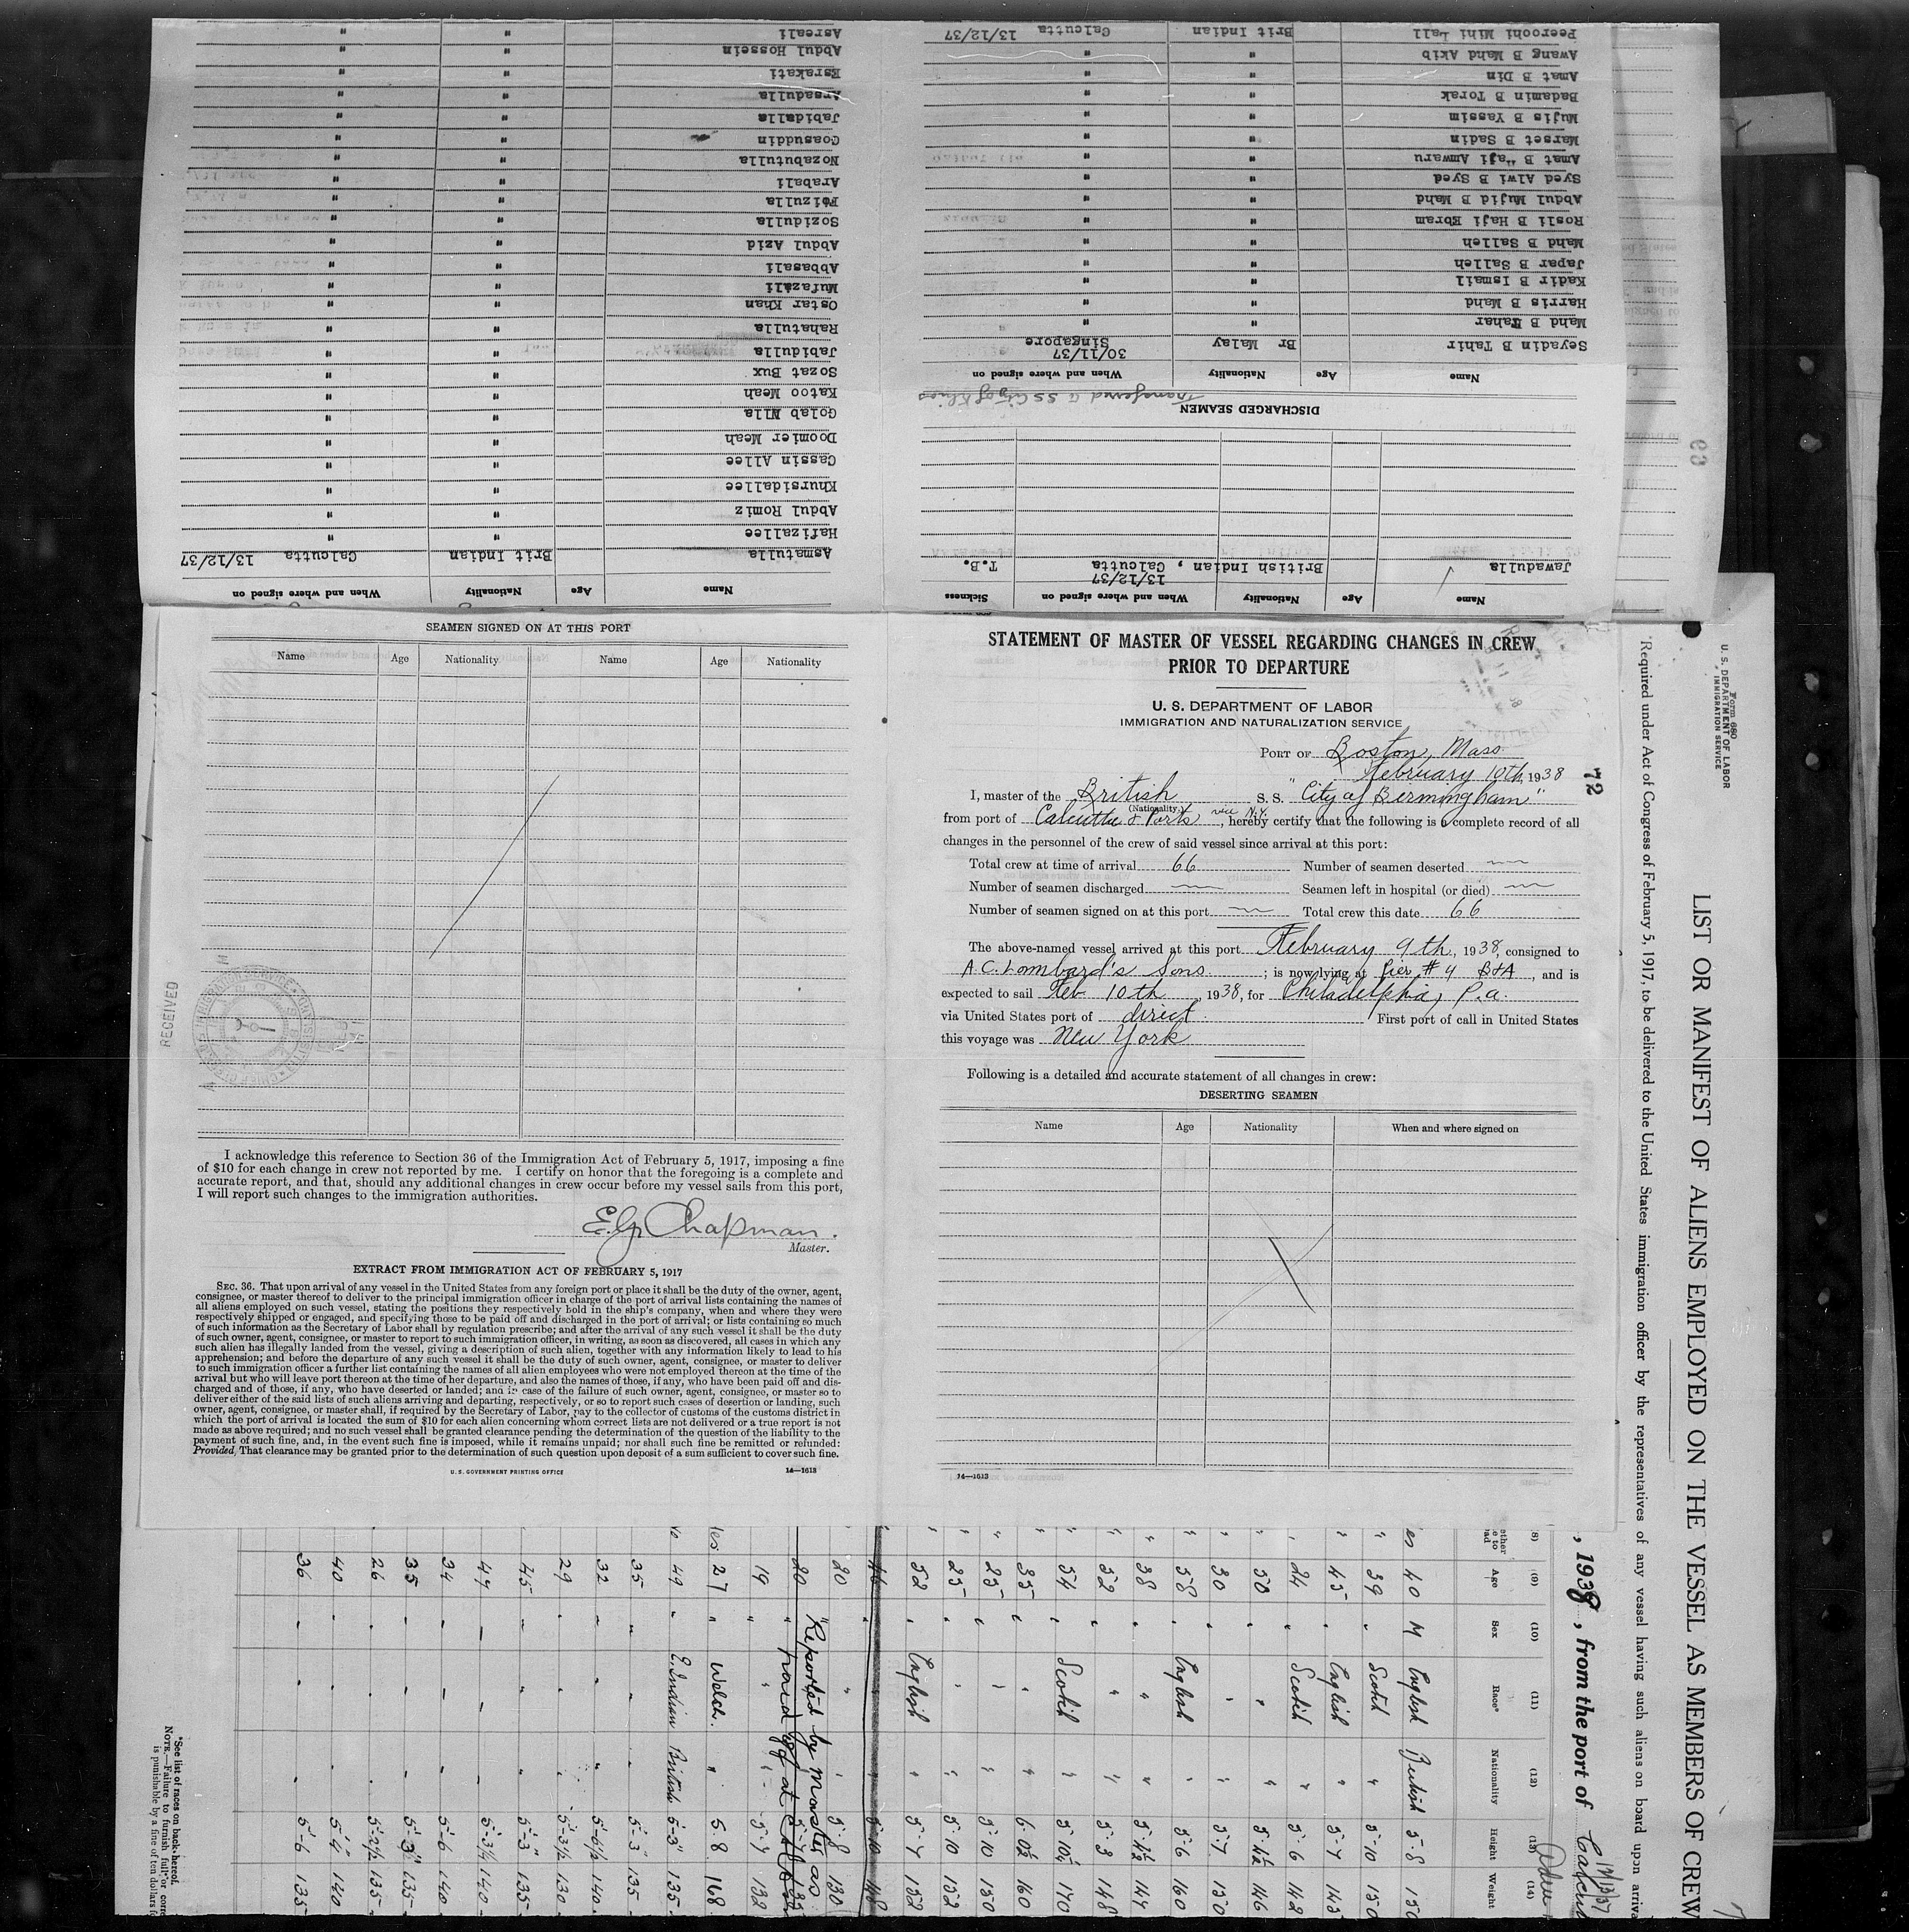 SEAMEN SIGNED ON AT THIS PORT
Name Age Nationality Name Age Nationality
I acknowledge this reference to Section 36 of the Immigration Act of February 5, 1917, imposing a fine
of $10 for each change in crew not reported by me. I certify on honor that the foregoing is a complete and
accurate report, and that, should any additional changes in crew occur before my vessel sails from this port,
I will report such changes to the immigration authorities.
E.G. Chapman.
Master.
EXTRACT FROM IMMIGRATION ACT OF FEBRUARY 5, 1917
SEC. 36. That upon arrival of any vessel in the United States from any foreign port or place it shall be the duty of the owner, agent,
consignee, or master thereof to deliver to the principal immigration officer in charge of the port of arrival lists containing the names of
all aliens employed on such vessel, stating the positions they respectively hold in the ship's company, when and where they were
respectively shipped or engaged, and specifying those to be paid off and discharged in the port of arrival; or lists containing so much
of such information as the Secretary of Labor shall by regulation prescribe; and after the arrival of any such vessel it shall be the duty
of such owner, agent, consignee, or master to report to such immigration officer, in writing, as soon as discovered, all cases in which any
such alien has illegally landed from the vessel, giving a description of such alien, together with any information likely to lead to his
apprehension; and before the departure of any such vessel it shall be the duty of such owner, agent, consignee, or master to deliver
to such immigration officer a further list containing the names of all alien employees who were not employed thereon at the time of the
arrival but who will leave port thereon at the time of her departure, and also the names of those, if any, who have been paid off and dis-
charged and of those, if any, who have deserted or landed; and in case of the failure of such owner, agent, consignee, or master so to
deliver either of the said lists of such aliens arriving and departing, respectively, or so to report such cases of desertion or landing, such
owner, agent, consignee, or master shall, if required by the Secretary of Labor, pay to the collector of customs of the customs district in
which the port of arrival is located the sum of $10 for each alien concerning whom correct lists are not delivered or a true report is not
made as above required; and no such vessel shall be granted clearance pending the determination of the question of the liability to the
payment of such fine, and, in the event such fine is imposed, while it remains unpaid; nor shall such fine be remitted or refunded:
Provided, That clearance may be granted prior to the determination of such question upon deposit of a sum sufficient to cover such fine.
U. S. GOVERNMENT PRINTING OFFICE 14—1613
RECEIVED
STATEMENT OF MASTER OF VESSEL REGARDING CHANGES IN CREW
PRIOR TO DEPARTURE
U. S. DEPARTMENT OF LABOR
IMMIGRATION AND NATURALIZATION SERVICE
PORT OF Boston, Mass.
February 10th, 1938
72
I, master of the British S. S. "City of Birmingham"
(Nationality)
from port of Calcutta & Ports via N.Y., hereby certify that the following is a complete record of all
changes in the personnel of the crew of said vessel since arrival at this port:
Total crew at time of arrival 66 Number of seamen deserted
Number of seamen discharged Seamen left in hospital (or died)
Number of seamen signed on at this port Total crew this date 66
The above-named vessel arrived at this port February 9th, 1938, consigned to
A.C. Lombard's Sons ; is now lying at Pier #4 B&A, and is
expected to sail Feb 10th, 1938, for Philadelphia, P.a.
via United States port of direct. First port of call in United States
this voyage was New York
Following is a detailed and accurate statement of all changes in crew:
DESERTING SEAMEN
Name Age Nationality When and where signed on
14—1613
Name Age Nationality When and where signed on Sickness
Jawadulla British Indian, Calcutta 13/12/37 T.B.
DISCHARGED SEAMEN
Transferred
Name Age Nationality When and where signed on
Seyadin B Tahir Br Malay 30/11/37 Singapore
Mahd B Tahar " "
Harris B Mahd " "
Kadir B Ismail " "
Japar B Salleh " "
Mahd B Salleh " "
Rosli B Haji Ebram " "
Abdul Mujid B Mahd " "
Syed Alwi B Syed " "
Amat B Haji Amwaru " "
Marset B Sadin " "
Mujis B Yassim " "
Badamin B Torak " "
Amat B Din " "
Awang B Mahd Akib " "
Peeroohi Mihi Lall Brit Indian Calcutta 13/12/37
Name Age Nationality When and where signed on
Asmatulla Brit Indian Calcutta 13/12/37
Hafizallee " "
Abdul Romiz " "
Khursidallee " "
Cassin Allee " "
Doomier Meah " "
Golab Ulla " "
Katoo Meah " "
Sozat Bux " "
Jabidulla " "
Rahatulla " "
Ostar Khan " "
Mufazali " "
Abbasali " "
Abdul Azid " "
Sozidulla " "
Foizulla " "
Arabali " "
Nozabutulla " "
Goasuddin " "
Jabidalla " "
Arsadulla " "
Esrakati " "
Abdul Hossein " "
Asreali " "
66
Form 680
U. S. DEPARTMENT OF LABOR
IMMIGRATION SERVICE
LIST OR MANIFEST OF ALIENS EMPLOYED ON THE VESSEL AS MEMBERS OF CREW
Required under Act of Congress of February 5, 1917, to be delivered to the United States immigration officer by the representatives of any vessel having such aliens on board upon arriva
, 1938, from the port of
(8) (9) (10) (11) (12) (13) (14)
Age Sex Race* Nationality Height Weight
40 M English British 5-8 150
39 " Scotch " 5-10 150
45 " English " 5-7 145
24 " Scotch " 5-6 142
50 " " " 5-4½ 146
30 " " " 5-7 150
58 " English " 5-6 160
38 " " " 5-4½ 144
52 " " " 5-3 148
54 " Scotch " 5-10½ 170
35 " " " 6-0½ 160
25 " " " 5-10 150
25 " " " 5-10 152
52 " English " 5-7 152
20 " " " 5-8 130
Reported by master as
paid off at
19 " " " 5-7 132
27 " Welch. " 5-8 168
49 " E. Indian British 5-3 135
35 " " " 5-3 135
32 " " " 5-6½ 140
29 " " " 5-3½ 130
45 " " " 5-3 135
44 " " " 5-3½ 140
34 " " " 5-6 140
35 " " " 5-3 135
26 " " " 5-2½ 135
40 " " " 5-4 140
36 " " " 5-6 135
*See list of races on back hereof.
NOTE.—Failure to furnish full or corre
is punishable by a fine of ten dollars f